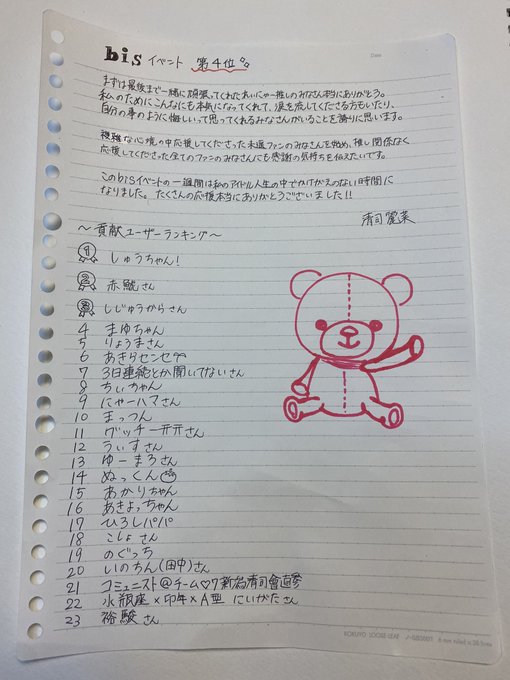 Date
bis イベント 第4位
まずは最後まで一緒に頑張ってくれたれいにゃー推しのみなさん本当にありがとう。
私のためにこんなにも本気になってくれて、涙を流してくださる方もいたり、
自分の事のように悔しいって思ってくれるみなさんがいることを誇りに思います。
複雑な心境の中応援してくださった未遥ファンのみなさんを始め、推し関係なく
応援してくださった全てのファンのみなさんにも感謝の気持ちを伝えたいです。
このbisイベントの一週間は私のアイドル人生の中でかけがえのない時間に
なりました。たくさんの応援本当にありがとうございました!!
清司麗菜
〜貢献ユーザーランキング〜
1 しゅうちゃん!
2 赤鯱さん
3 しじゅうからさん
4 まゆちゃん
5 りょうまさん
6 あきらセンセ
7 3日連続とか聞いてないさん
8 ちぃちゃん
9 にゃーハマさん
10 まっつん
11 グッチー开开さん
12 うぃすさん
13 ゆーまろさん
14 ぬっくん
15 あかりちゃん
16 あきよっちゃん
17 ひろしパパ
18 こしょさん
19 のぐっち
20 いのちん(田中)さん
21 コミュニスト@チーム♡7新潟清司會直参
22 水瓶座×卯年×A型 にいがたさん
23 裕駿さん
KOKUYO LOOSE-LEAF 6 mm ruled